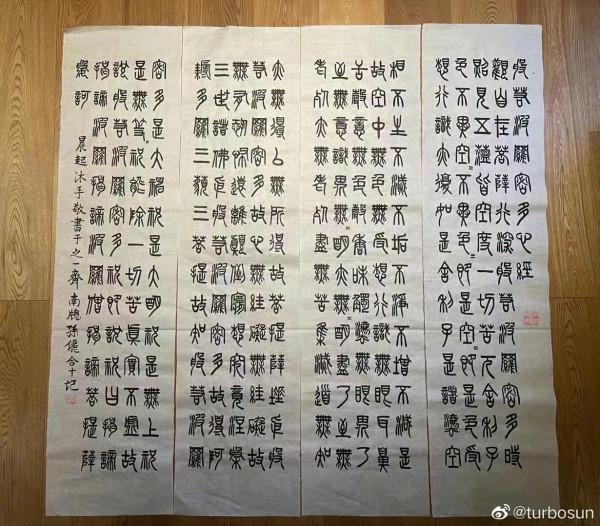 般若波羅密多心經
觀自在菩薩行深般若波羅密多時
照見五蘊皆空度一切苦厄舍利子
色不異空=不異色=即是空=即是色受
想行識亦復如是舍利子是諸法空
相不生不滅不垢不淨不增不減是
故空中無色無受想行識無眼耳鼻
舌身意無色聲香味觸法無眼界乃
至無意識界無=明亦無=明盡乃至無
老死亦無老死盡無苦集滅道無知
亦無得以無所得故菩提薩埵依般
若波羅密多故心無罣礙無罣礙故
無有恐怖遠離顛倒夢想究竟涅槃
三世諸佛依般若波羅密多故得阿
耨多羅三藐三菩提故知般若波羅
密多是大神咒是大明咒是無上咒
是無等=咒能除一切苦真實不虛故
說般若波羅密多咒即說咒曰揭諦
揭諦波羅揭諦波羅僧揭諦菩提薩
婆訶 晨起沐手敬書于之一齋南牕孫合十記
@turbosun